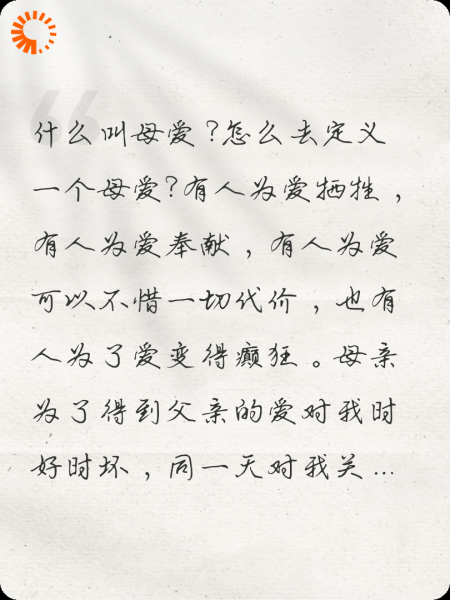 什么叫母爱?怎么去定义
一个母爱?有人为爱牺牲，
有人为爱奉献，有人为爱
可以不惜一切代价，也有
人为了爱变得癫狂。母亲
为了得到父亲的爱对我时
好时坏，同一天对我关...